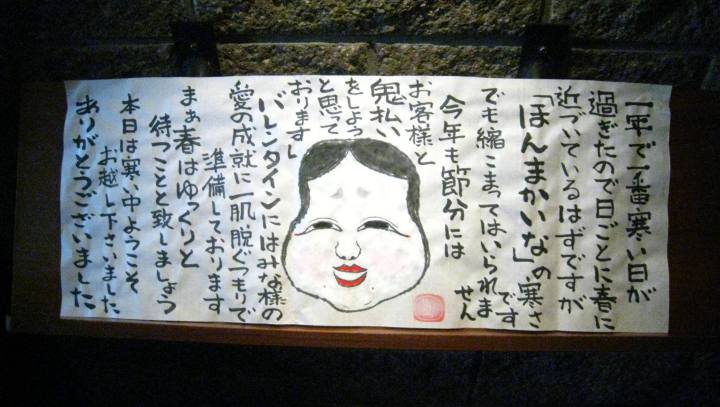 一年で一番寒い日が
過ぎたので日ごとに春に
近づいているはずですが
「ほんまかいな」の寒さ
です
でも縮こまってはいられま
せん
今年も節分には
お客様と
鬼払い
をしよう
と思って
おります
バレンタインにはみな様の
愛の成就に一肌脱ぐつもりで
準備しております
まぁ春はゆっくりと
待つことと致しましょう
本日は寒い中ようこそ
お越し下さいました
ありがとうございました